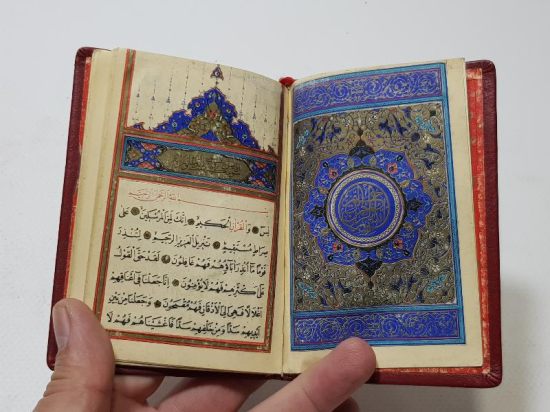 بِسْمِ اللّٰهِ الرَّحْمٰنِ الرَّحِيمِ
يٰسۤ وَالْقُرْاٰنِ الْحَكِيمِ اِنَّكَ لَمِنَ الْمُرْسَلِينَ عَلٰى
صِرَاطٍ مُسْتَقِيمٍ تَنْزِيلَ الْعَزِيزِ الرَّحِيمِ لِتُنْذِرَ
قَوْمًا مَا اُنْذِرَ اٰبَاؤُهُمْ فَهُمْ غَافِلُونَ لَقَدْ حَقَّ الْقَوْلُ
عَلٰى اَكْثَرِهِمْ فَهُمْ لَا يُؤْمِنُونَ اِنَّا جَعَلْنَا فِي اَعْنَاقِهِمْ
اَغْلَالًا فَهِيَ اِلَى الْاَذْقَانِ فَهُمْ مُقْمَحُونَ وَجَعَلْنَا مِنْ بَيْنِ
اَيْدِيهِمْ سَدًّا وَمِنْ خَلْفِهِمْ سَدًّا فَاَغْشَيْنَاهُمْ فَهُمْ لَا